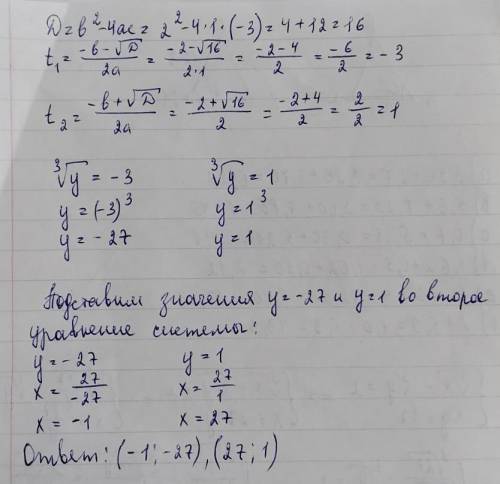 D = b² - 4ac = 2² - 4·1·(-3) = 4 + 12 = 16
t₁ = (-b - √D)/2a = (-2 - √16)/(2·1) = (-2 - 4)/2 = -6/2 = -3
t₂ = (-b + √D)/2a = (-2 + √16)/2 = (-2 + 4)/2 = 2/2 = 1
∛y = -3 ∛y = 1
y = (-3)³ y = 1³
y = -27 y = 1
Подставим значения y = -27 и y = 1 во второе
уравнение системы:
y = -27 y = 1
x = 27/-27 x = 27/1
x = -1 x = 27
Ответ: (-1; -27), (27; 1)